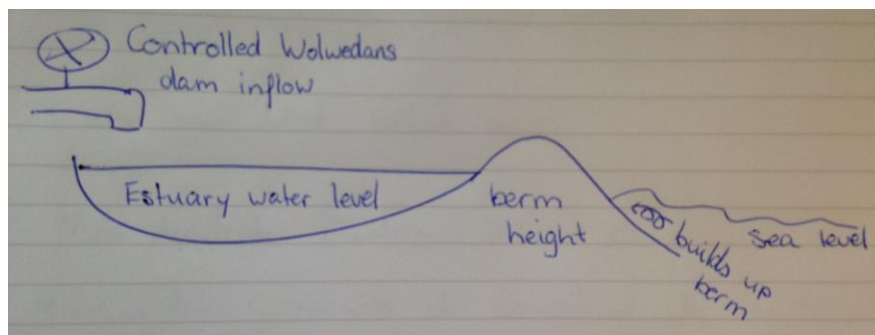 Controlled Wolwedans
dam inflow
Estuary water level
berm
height
builds up
berm
sea level